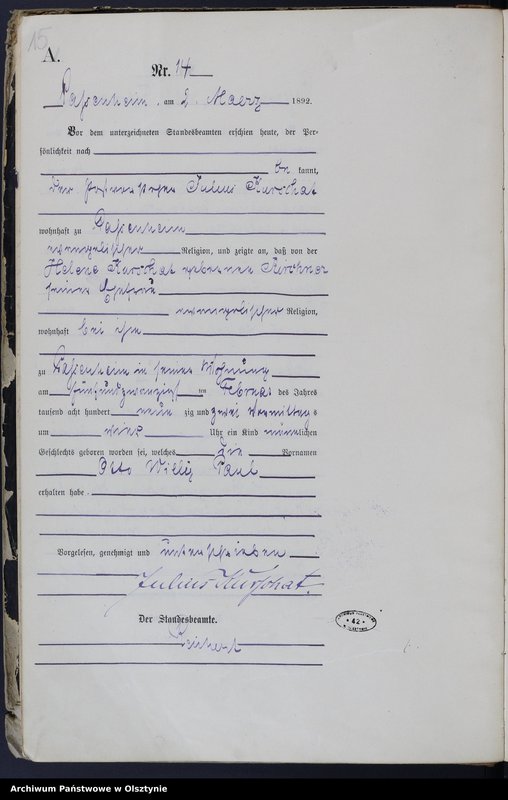 15
A.
Nr. 14
Passenheim, am 2. Maerz 1892.
Vor dem unterzeichneten Standesbeamten erschien heute, der Per-
sönlichkeit nach
be kannt,
der Julius Kurschat
wohnhaft zu Passenheim
evangelischer Religion, und zeigte an, daß von der
Helene Kurschat geborenen Kirschner
seiner Ehefrau
evangelischer Religion,
wohnhaft bei ihm
zu Passenheim in seiner Wohnung
am fünfundzwanzigsten Februar des Jahres
tausend acht hundert neun zig und zwei Vormittags
um Uhr ein Kind männlichen
Geschlechts geboren worden sei, welches die Vornamen
Otto Willy Paul
erhalten habe.
Vorgelesen, genehmigt und unterschrieben
Julius Kurschat.
Der Standesbeamte.
42
Archiwum Państwowe w Olsztynie